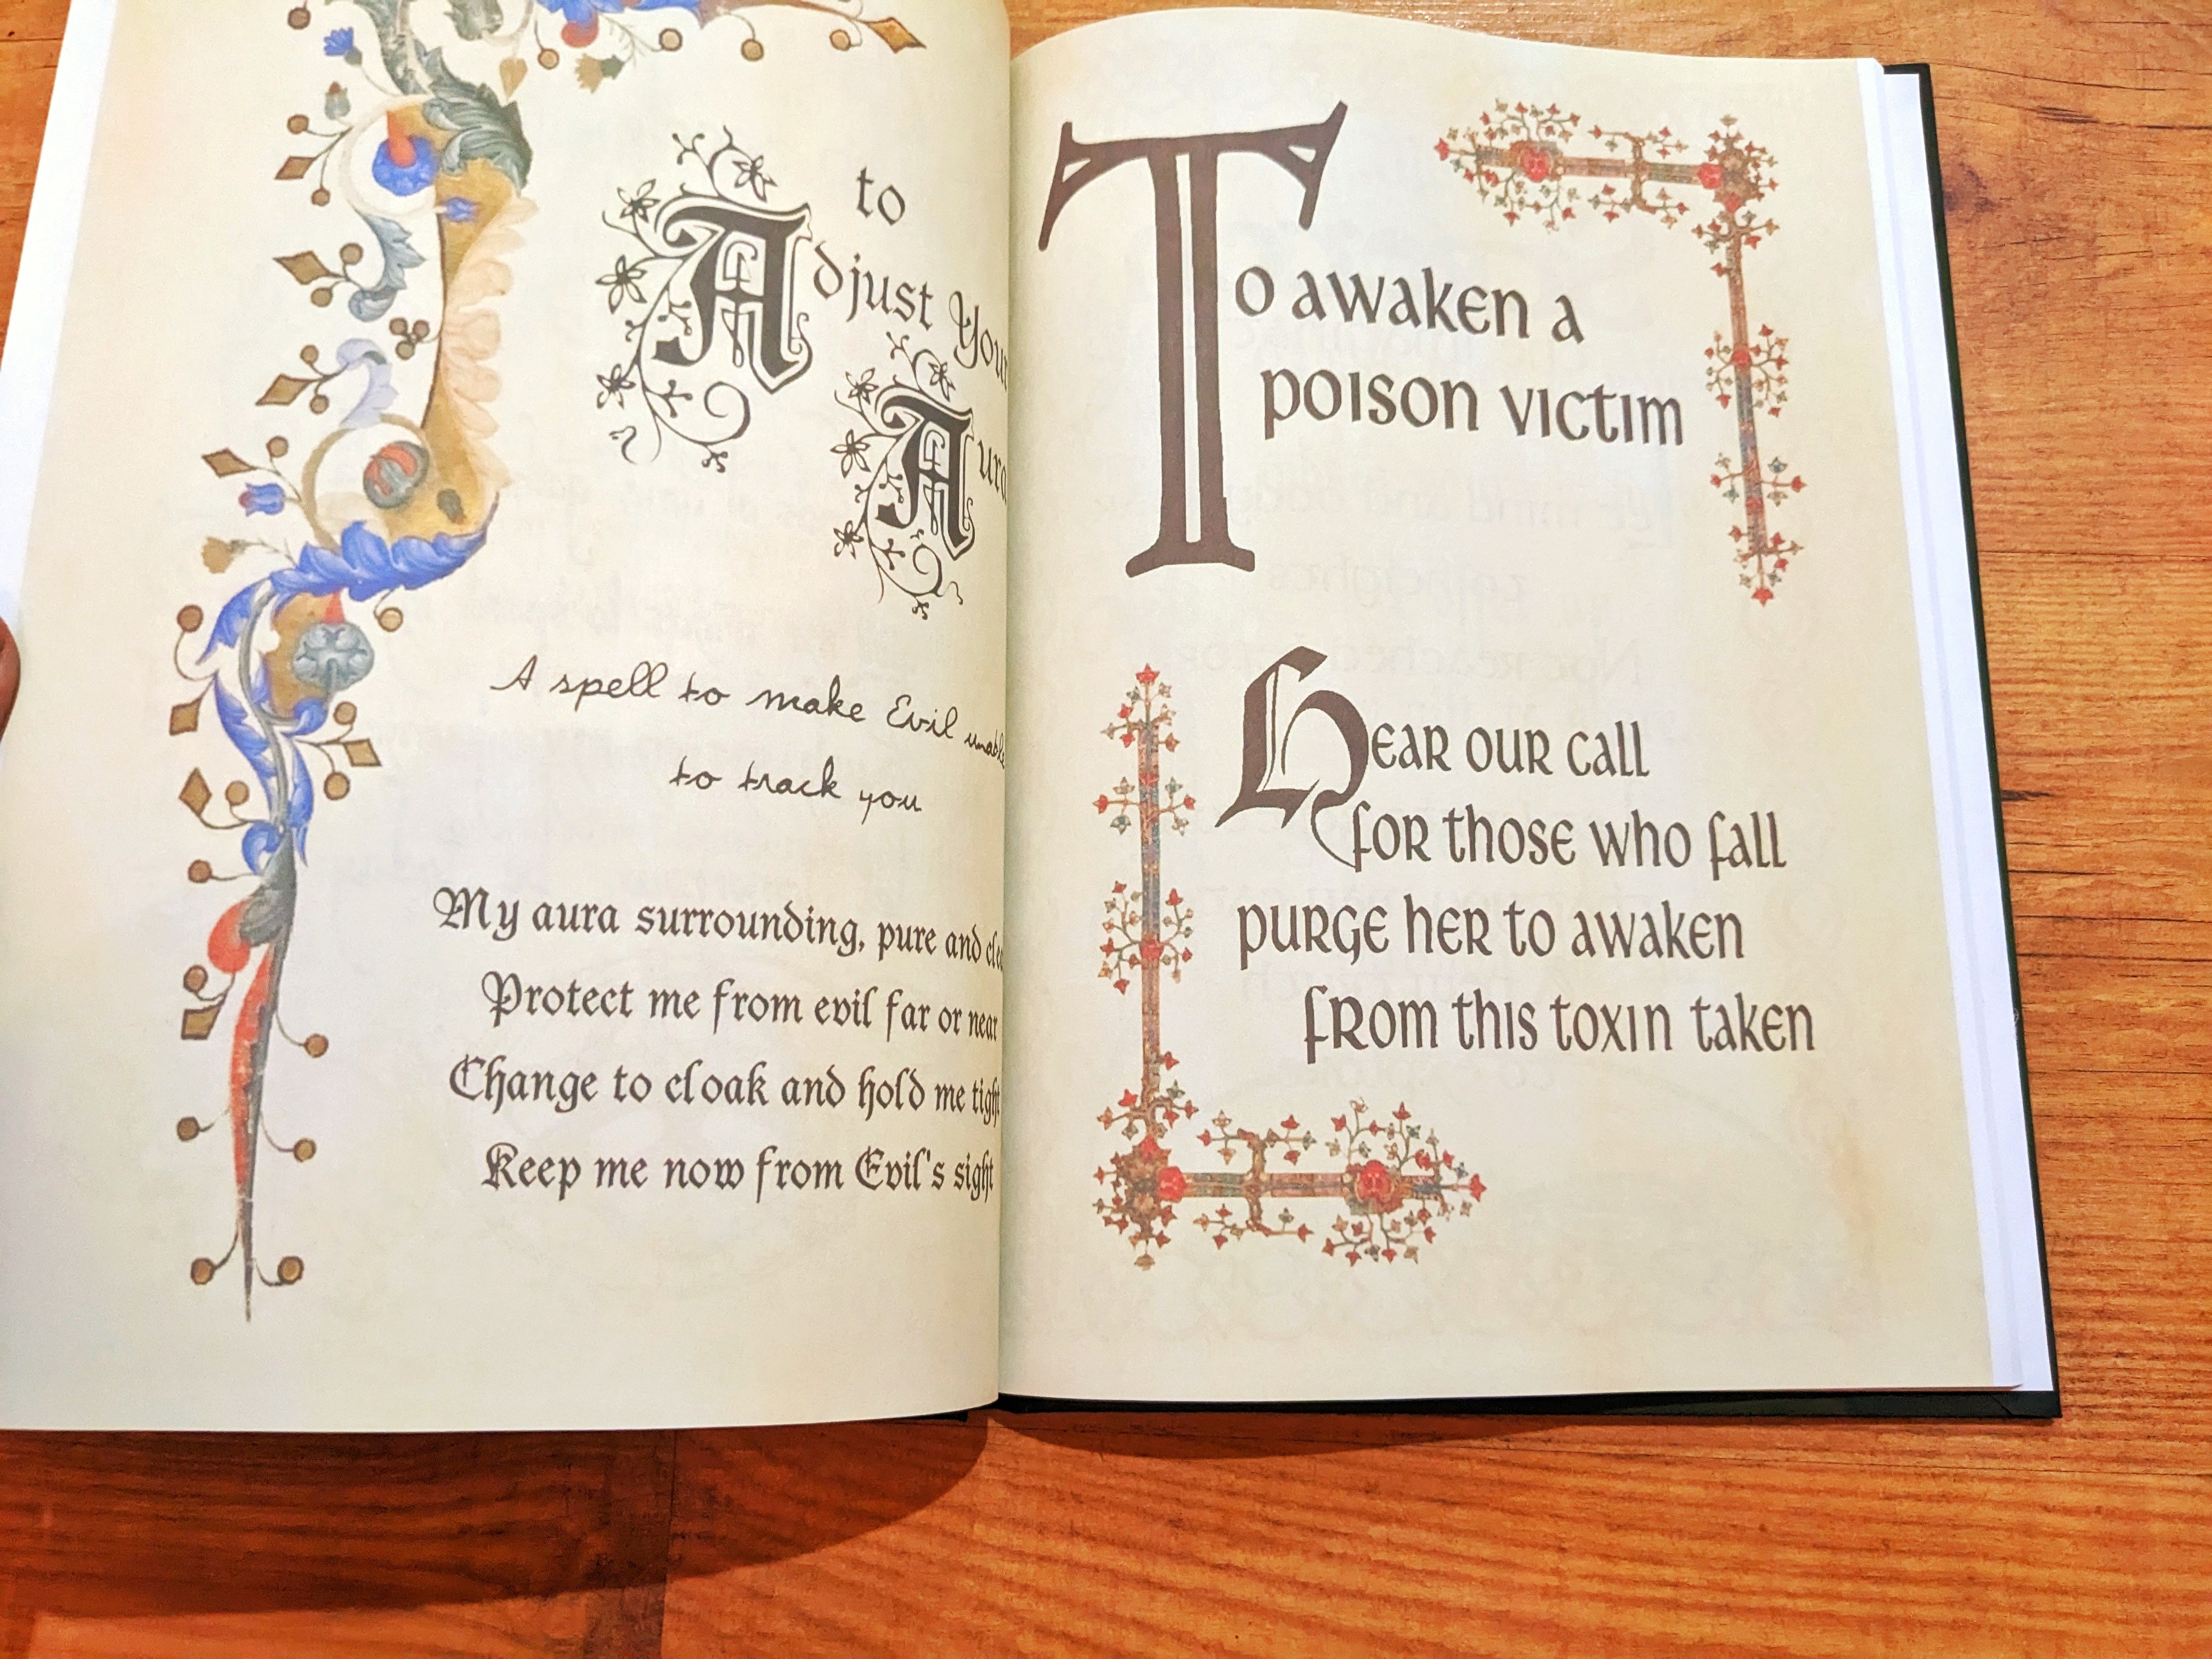 to
Adjust Your
Aura
A spell to make Evil unable
to track you
My aura surrounding, pure and
Protect me from evil far or near
Change to cloak and hold me tight
Keep me now from Evil's sight
To awaken a
poison victim
Hear our call
for those who fall
purge her to awaken
from this toxin taken